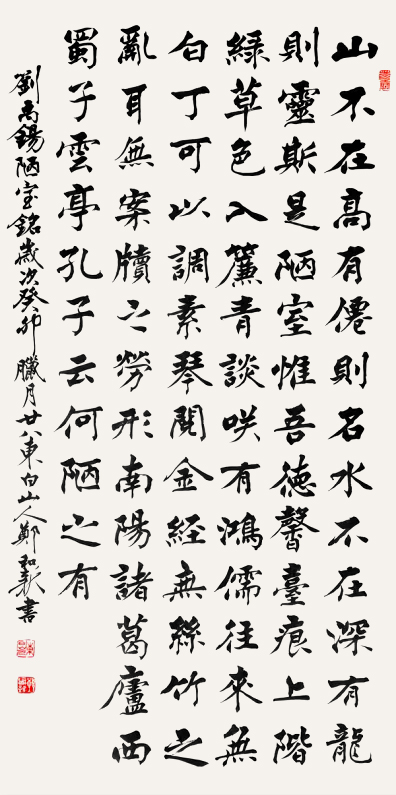 山不在高有僊則名水不在深有龍
則靈斯是陋室惟吾德馨臺痕上階
綠草色入簾青談咲有鴻儒往來無
白丁可以調素琴閱金經無絲竹之
亂耳無案牘之勞形南陽諸葛廬西
蜀子雲亭孔子云何陋之有
劉禹錫陋室銘歲次癸卯臘月廿八東白山人鄭和書